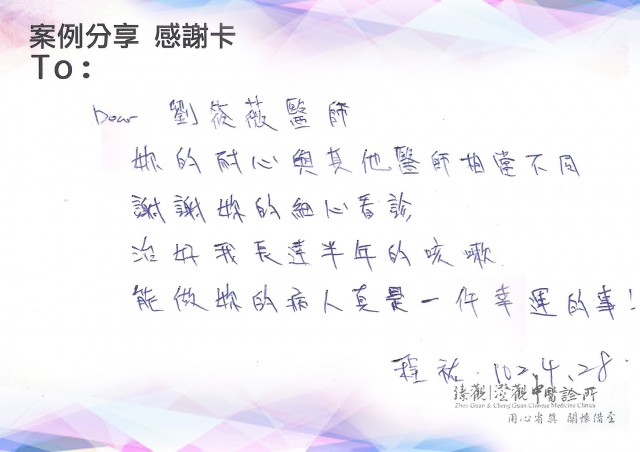 案例分享 感謝卡
To:
Dear 劉筱薇醫師
妳的耐心與其他醫師相當不同
謝謝妳的細心看診
治好我長達半年的咳嗽
能做妳的病人真是一件幸運的事!
程祐 102.4.28
臻觀|澄觀中醫診所
Zhen Guan & Cheng Guan Chinese Medicine Clinics
用心省異 關懷備至